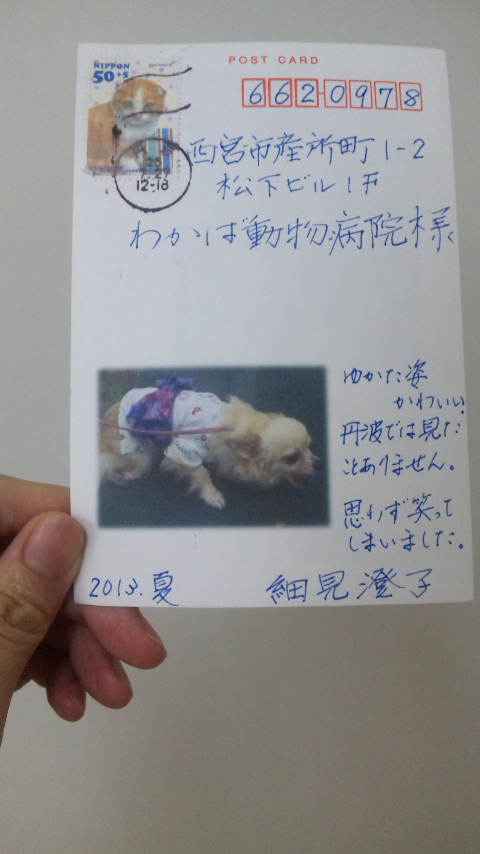 POST CARD
NIPPON
50+5
662-0978
12-18
西宮市産所町1-2
松下ビル1F
わかば動物病院様
ゆかた姿
かわいい!
丹波では見た
ことありません。
思わず笑って
しまいました。
2013.夏
細見澄子